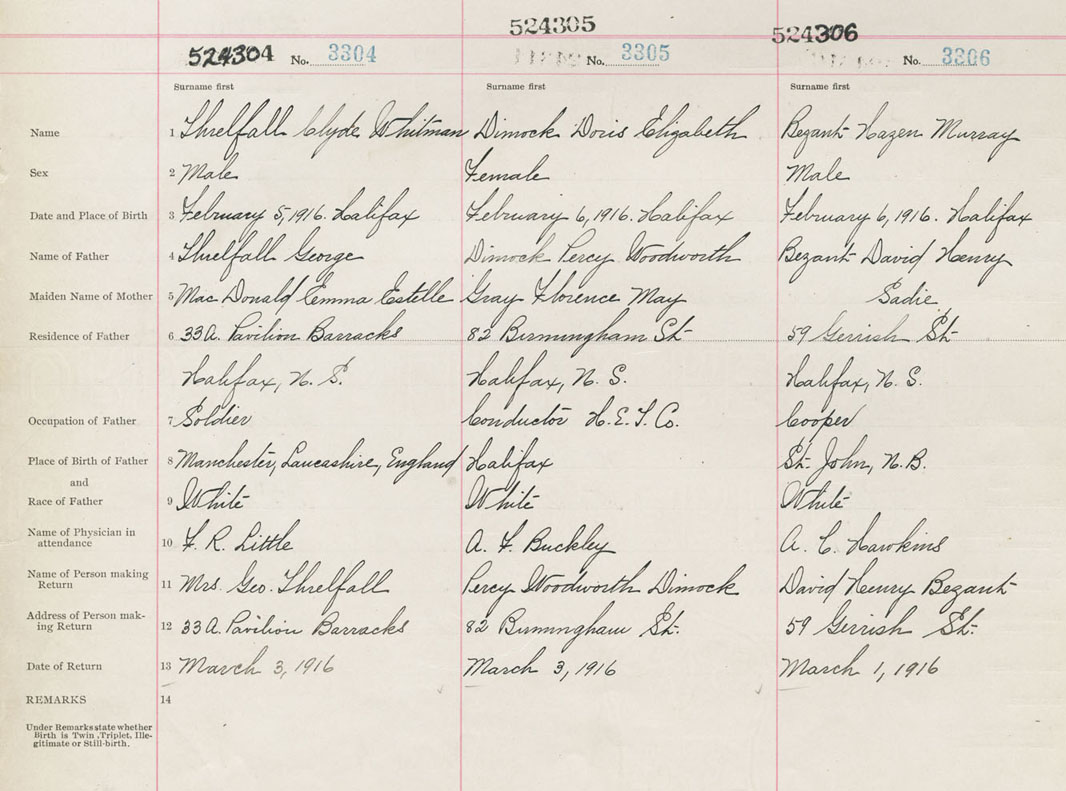 524304 No. 3304
524305 No. 3305
524306 No. 3306
Surname first Surname first Surname first
Name 1 Threlfall Clyde Whitman Dimock Doris Elizabeth Bezant Hazen Murray
Sex 2 Male Female Male
Date and Place of Birth 3 February 5, 1916. Halifax February 6, 1916. Halifax February 6, 1916. Halifax
Name of Father 4 Threlfall George Dimock Percy Woodworth Bezant David Henry
Maiden Name of Mother 5 Mac Donald Emma Estelle Gray Florence May Sadie
Residence of Father 6 33A. Pavilion Barracks 82 Birmingham St. 59 Gerrish St.
Halifax, N. S. Halifax, N. S. Halifax, N. S.
Occupation of Father 7 Soldier Conductor H.E.T. Co. Cooper
Place of Birth of Father 8 Manchester, Lancashire, England Halifax St. John, N.B.
and
Race of Father 9 White White White
Name of Physician in
attendance 10 F. R. Little A. F. Buckley A. C. Hawkins
Name of Person making
Return 11 Mrs. Geo. Threlfall Percy Woodworth Dimock David Henry Bezant
Address of Person mak-
ing Return 12 33A. Pavilion Barracks 82 Birmingham St. 59 Gerrish St.
Date of Return 13 March 3, 1916 March 3, 1916 March 1, 1916
REMARKS 14
Under Remarks state whether
Birth is Twin, Triplet, Ille-
gitimate or Still-birth.